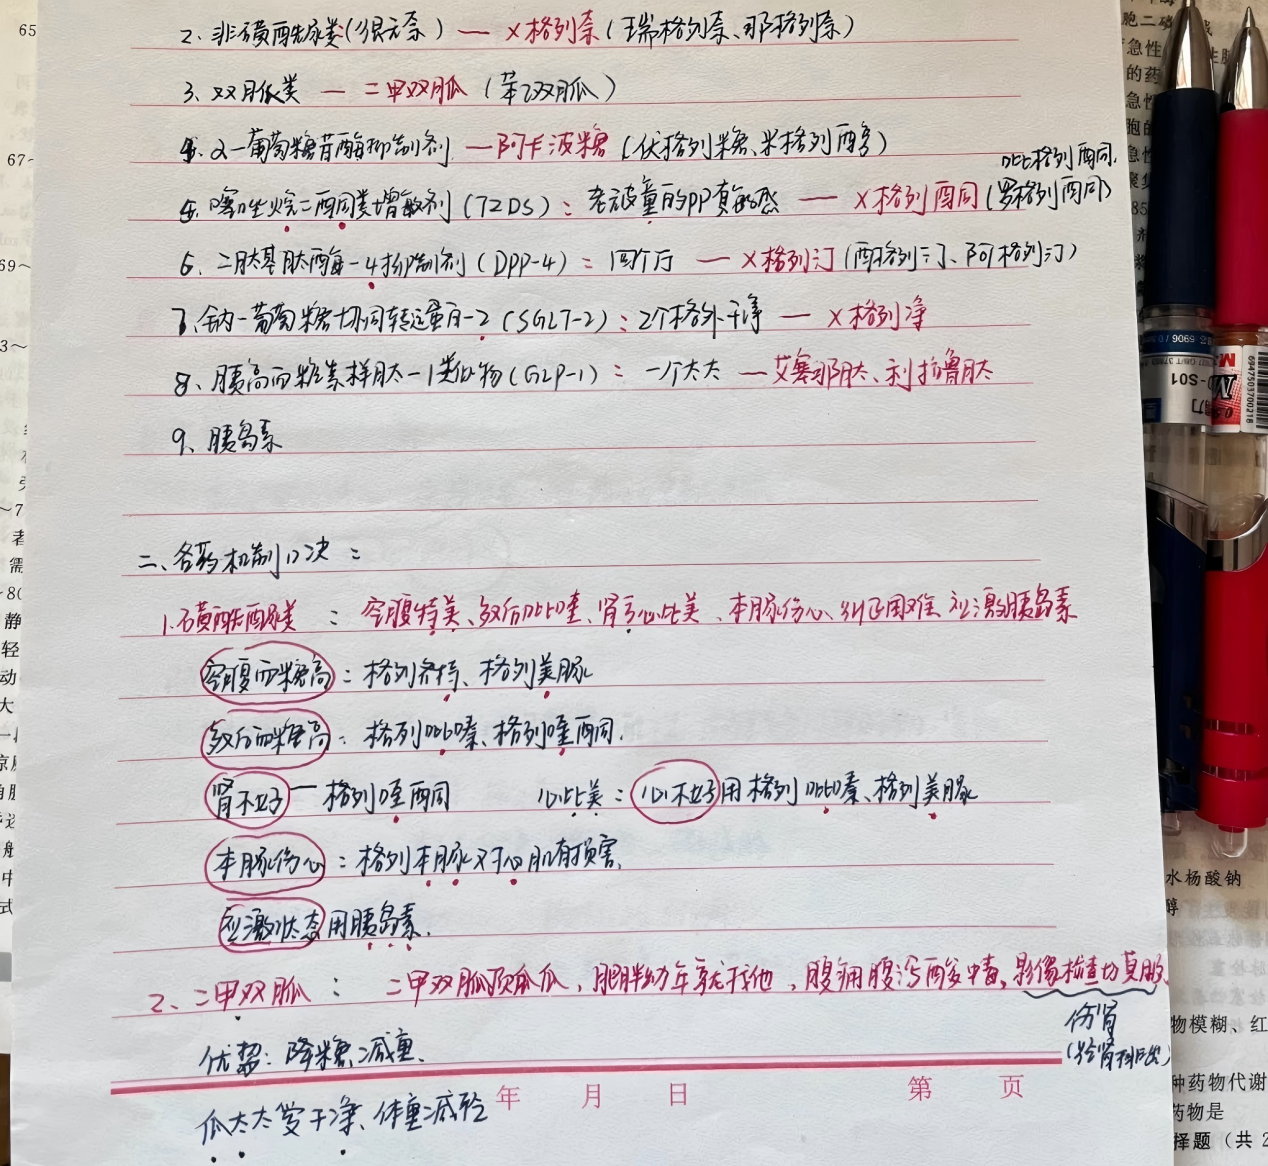 2、非磺酰脲类(很无奈) — X格列奈(瑞格列奈、那格列奈)
3、双胍类 — 二甲双胍 (苯乙双胍)
4、α-葡萄糖苷酶抑制剂 — 阿卡波糖 (伏格列糖、米格列醇)
吡格列酮、
5、噻唑烷二酮类增敏剂 (TZDS): 老被童的PP真敏感 — X格列酮 (罗格列酮)
6、二肽基肽酶-4抑制剂 (DPP-4): 四个厅 — X格列汀 (西格列汀、阿格列汀)
7、钠-葡萄糖协同转运蛋白-2 (SGLT-2): 2个格外干净 — X格列净
8、胰高血糖素样肽-1类似物 (GLP-1): 一个太太 — 艾塞那肽、利拉鲁肽
9、胰岛素
二、各药机制口决:
1.磺酰脲类: 空腹特美、餐后吡喹、肾亏心比美、本脲伤心、应激胰岛素
空腹血糖高: 格列齐特、格列美脲
餐后血糖高: 格列吡嗪、格列喹酮.
肾不好 — 格列喹酮 心比美: 心不好用格列吡嗪、格列美脲
本脲伤心: 格列本脲对心肌有损害.
应激状态用胰岛素.
2、二甲双胍: 二甲双胍顶呱瓜, 肥胖幼年就找他, 腹痛腹泻酸中毒, 影像检查切莫服
伤肾
优势: 降糖、减重、
年 月 日 第 页
瓜太太爱干净、体重减轻
水杨酸钠
物模糊、红
种药物代谢
药物是
择题 (共 2